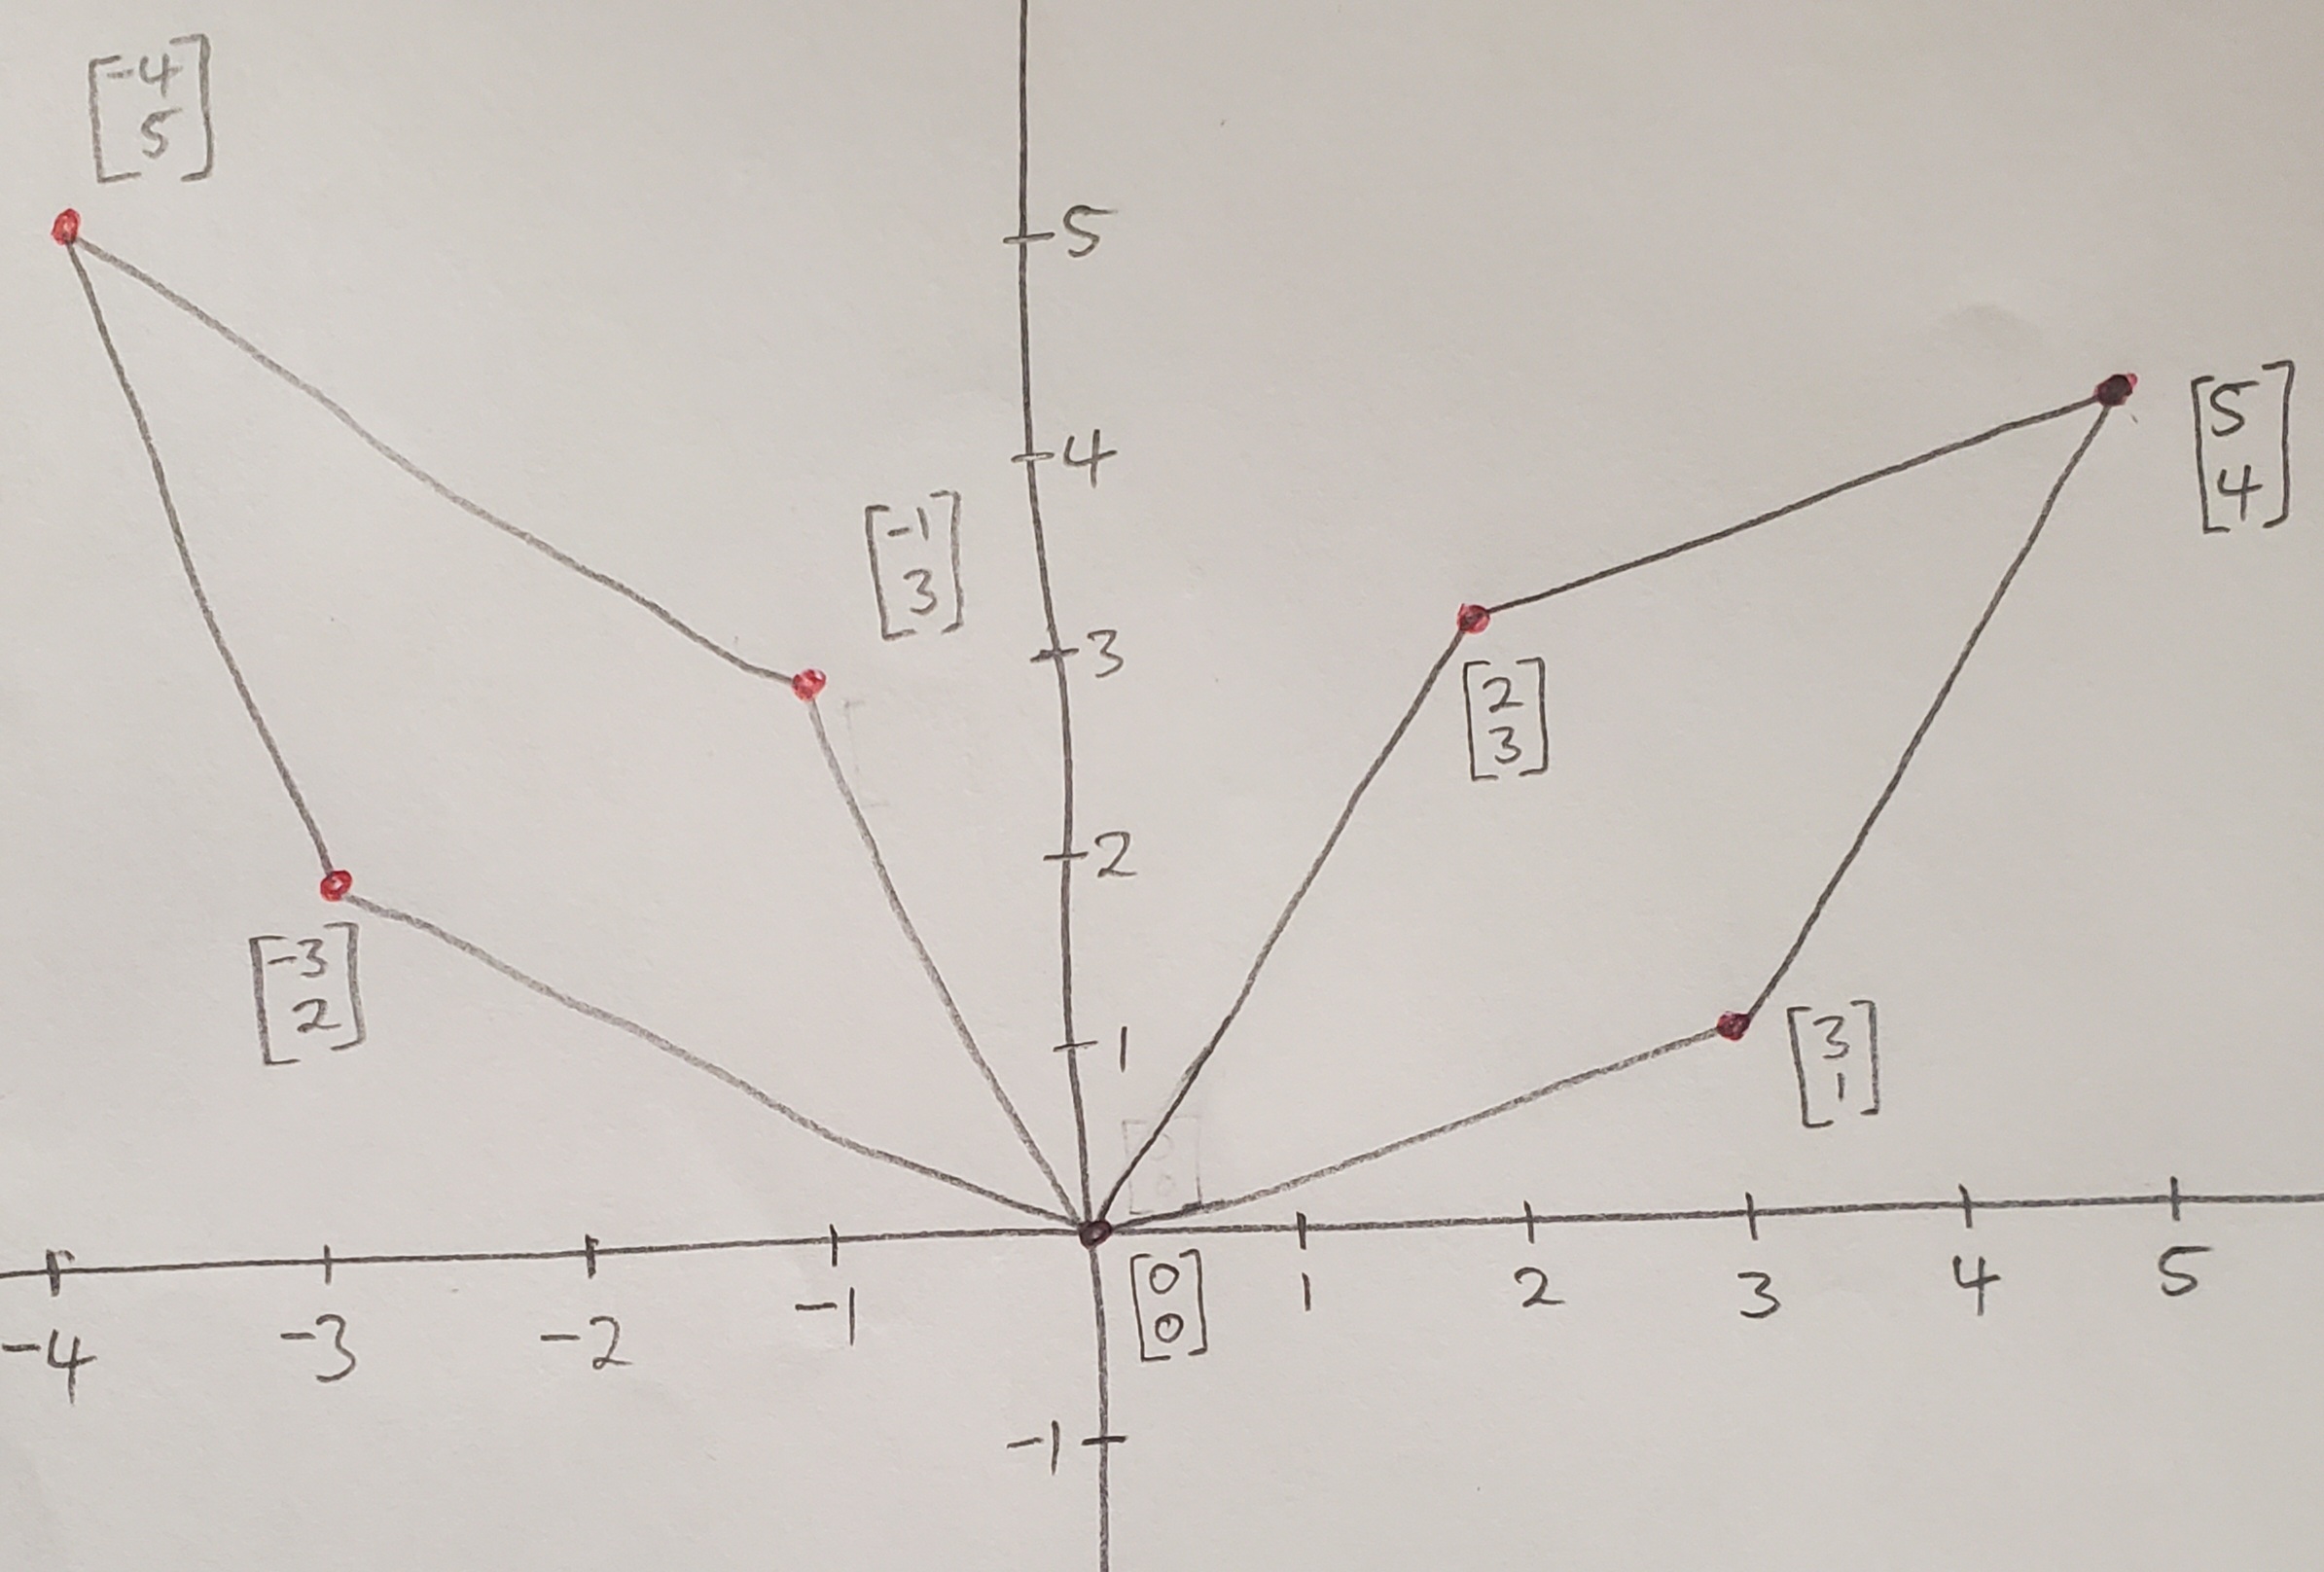 [-4
5]
5
4
[5
4]
[-1
3]
3
[2
3]
2
[-3
2]
1
[3
1]
[0
0]
-4
-3
-2
-1
1
2
3
4
5
-1